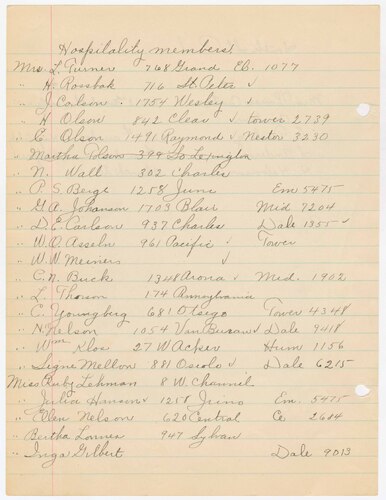 Hospitality members
Mrs. L. Turner 768 Grand El. 1077
" H. Rossbak 716 St. Peter ✓
" J. Carlson 1754 Wesley ✓
" H Olson 842 Clear ✓ Tower 2739
" C Olson 1491 Raymond ✓ Nestor 3230
" Martha Polson 399 So Lexington
" N. Wall 302 Charles
" P. S. Berge 1258 Juno Em 5475
" G. A. Johanson 1703 Blair Mid 7204
" D. E. Carlson 937 Charles Dale 1355 ✓
" W. O. Asseln 961 Pacific ✓ Tower
" W. W. Meiners ✓
" C. N. Buck 1348 Arona ✓ Mid. 1902
" L. Thoson 174 Pennsylvania
" C. Youngberg 681 Otsego Tower 4348
" H. Nelson 1054 Van Buren ✓ Dale 9418
" Wm Klos 27 W Acker Hum 1156
" Signe Mellon 881 Osceola ✓ Dale 6215
Miss Ruby Lehman 8 W. Channel
" Julia Hansen ✓ 1258 Juno Em. 5475
" Ellen Nelson 620 Central Ce 2684
" Bertha Lonnes 947 Sylvan
" Inga Gilbert Dale 9013